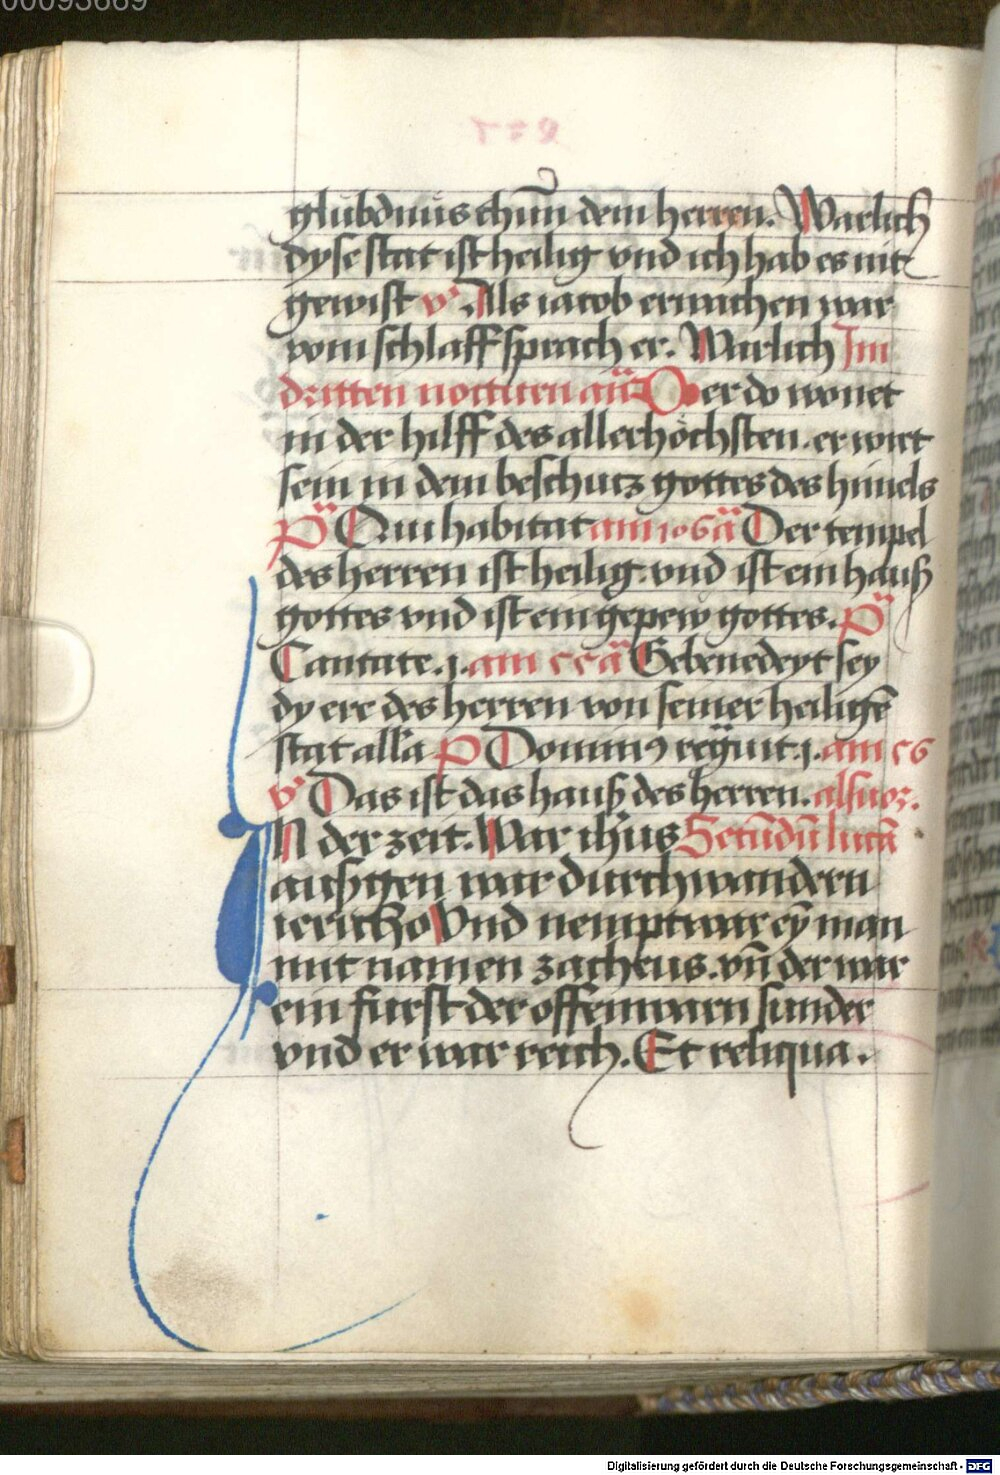 00093669
glubdnus chūn dem herren. Warlich
dyse stat ist heilig vnd ich hab es nit
gewist v̕ Als iacob erwachen war
vom schlaff sprach er. Warlich Im
dritten nocturn añ Der do wonet
in der hilff des allerhöchsten. er wirt
sein in dem beschutz gottes des himels
Qui habitat am Der tempel
des herren ist heilig. vnd ist ein hauß
gottes vnd ist ein gepew gottes.
Cantate. j. am Gebenedeyt sey
dy ere des herren von seiner heiligē
stat alla Dominꝰ regnauit. j. am
v̕ Das ist das hauß des herren.
IN der zeit. War ih̄us Secūdū lucā
außgen war durchwandern
iericho Vnd nempt war eȳ man
mit namen zacheus. vn̄ der war
ein fürst der offenwarn sunder
vnd er war reich. Et reliqua.
Digitalisierung gefördert durch die Deutsche Forschungsgemeinschaft - DFG